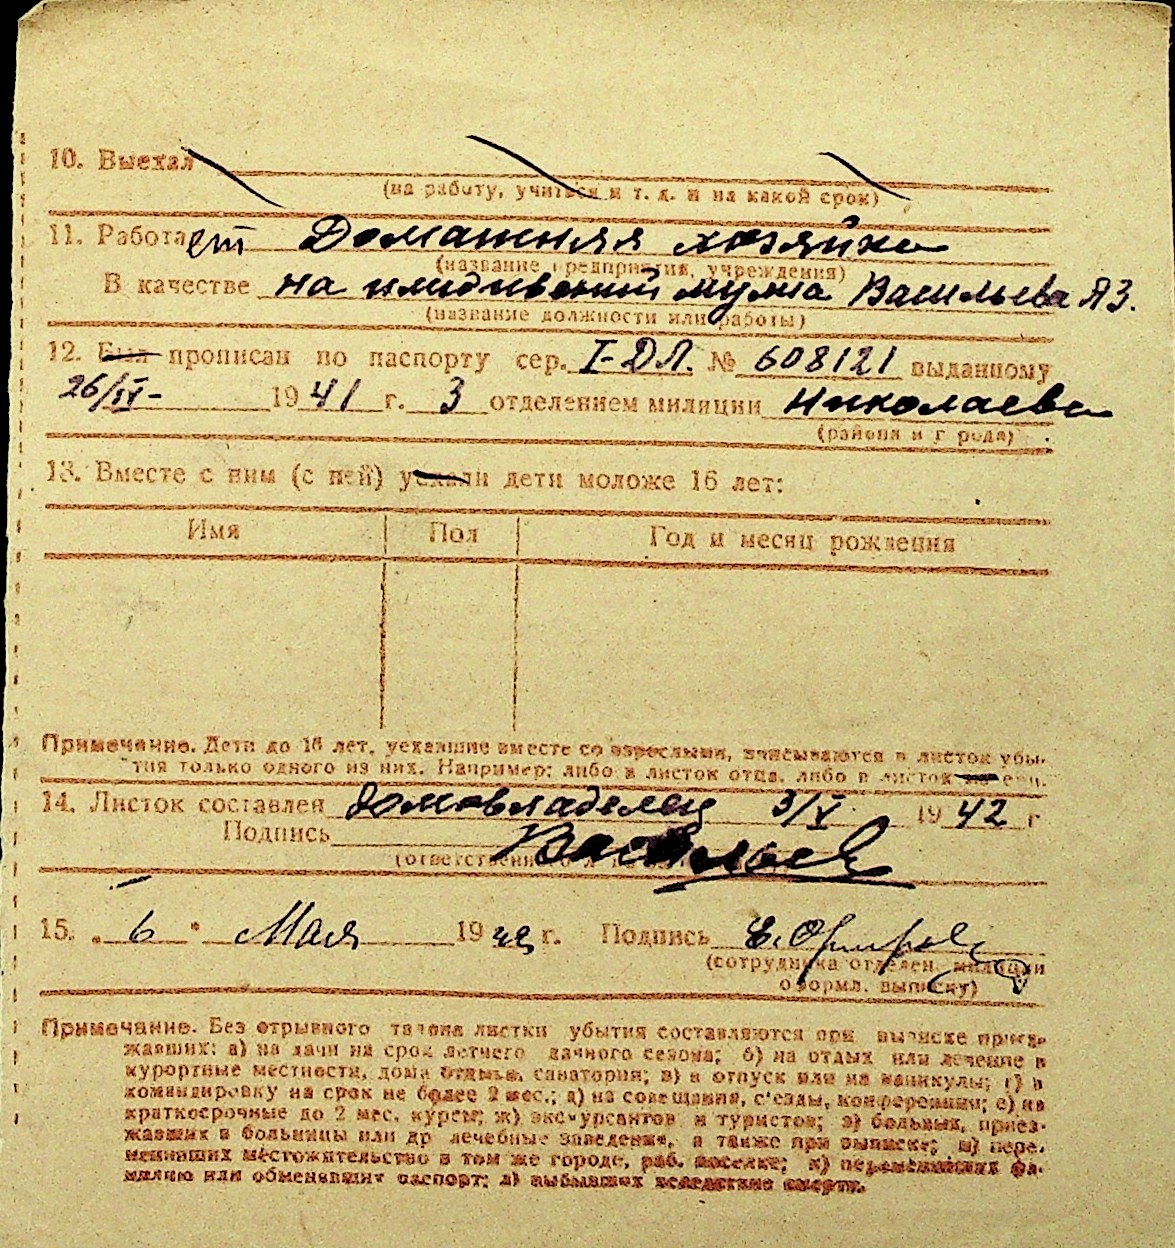 10. Выехал
(на работу, учиться и т. д. и на какой срок)
11. Работает Домашняя хозяйка
(название предприятия, учреждения)
В качестве на иждивении мужа Васильева Я З.
(название должности или работы)
12. Был прописан по паспорту сер. I-ДЛ. № 608121 выданному
26/IV- 1941 г. 3 отделением милиции Николаева
(района и г рода)
13. Вместе с ним (с ней) уехали дети моложе 16 лет:
Имя Пол Год и месяц рождения
Примечание. Дети до 16 лет, уехавшие вместе со взрослыми, вписываются в листок убы-
тия только одного из них. Например: либо в листок отца, либо в листок
14. Листок составлен домовладелец 3/V 1942 г
Подпись Васильев
(ответственного
15. „ 6 " Мая 1942 г. Подпись
(сотрудника отделен. милиции
оформл. выписку)
Примечание. Без отрывного талона листки убытия составляются при выписке приез-
жавших: а) на дачи на срок летнего дачного сезона; б) на отдых или лечение в
курортные местности, дома отдыха, санатории; в) в отпуск или на каникулы; г) в
командировку на срок не более 2 мес.; д) на совещания, с'езды, конференции; е) на
краткосрочные до 2 мес. курсы; ж) экскурсантов и туристов; з) больных, приез-
жавших в больницы или др лечебные заведения, а также при выписке; и) пере-
менивших местожительство в том же городе, раб. поселке; к) переменивших фа-
милию или обменявших паспорт; л) выбывших вследствие смерти.